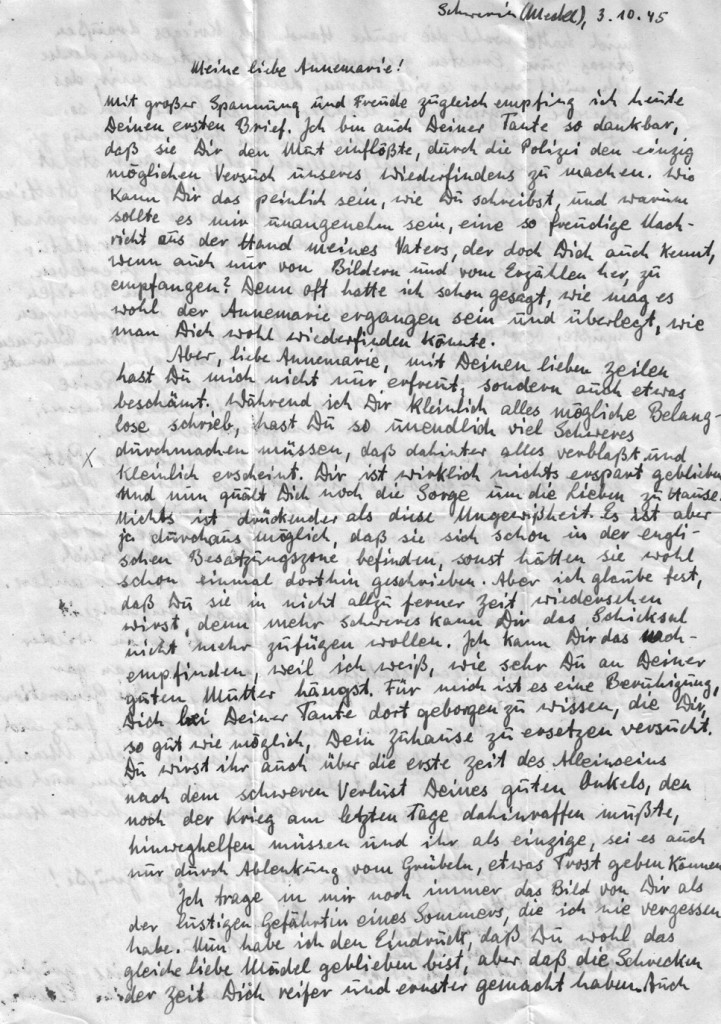 Schwerin (Meckl), 3.10.45
Meine liebe Annemarie!
Mit großer Spannung und Freude zugleich empfing ich heute
Deinen ersten Brief. Ich bin auch Deiner Tante so dankbar,
daß sie Dir den Mut einflößte, durch die Polizei den einzig
möglichen Versuch unseres Wiederfindens zu machen. Wie
kann Dir das peinlich sein, wie Du schreibst, und warum
sollte es mir unangenehm sein, eine so freudige Nach-
richt aus der Hand meines Vaters, der doch Dich auch kennt,
wenn auch nur von Bildern und vom Erzählen her, zu
empfangen? Denn oft hatte ich schon gesagt, wie mag es
wohl der Annemarie ergangen sein und überlegt, wie
man Dich wohl wiederfinden könnte.
Aber, liebe Annemarie, mit Deinen lieben Zeilen
hast Du mich nicht nur erfreut, sondern auch etwas
beschämt. Während ich Dir kleinlich alles mögliche Belang-
lose schrieb, hast Du so unendlich viel Schweres
durchmachen müssen, daß dahinter alles verblaßt und
X
kleinlich erscheint. Dir ist wirklich nichts erspart geblieben
und nun quält Dich noch die Sorge um die Lieben zu Hause.
Nichts ist drückender als diese Ungewißheit. Es ist aber
ja durchaus möglich, daß sie sich schon in der engli-
schen Besatzungszone befinden, sonst hätten sie wohl
schon einmal dorthin geschrieben. Aber ich glaube fest,
daß Du sie in nicht allzu ferner Zeit wiedersehen
wirst, denn mehr Schweres kann Dir das Schicksal
nicht mehr zufügen wollen. Ich kann Dir das nach-
empfinden, weil ich weiß, wie sehr Du an Deiner
guten Mutter hängst. Für mich ist es eine Beruhigung,
Dich bei Deiner Tante dort geborgen zu wissen, die Dir,
so gut wie möglich, Dein Zuhause zu ersetzen versucht.
Du wirst ihr auch über die erste Zeit des Alleinseins
nach dem schweren Verlust Deines guten Onkels, den
noch der Krieg am letzten Tage dahinraffen mußte,
hinweghelfen müssen und ihr als einzige, sei es auch
nur durch Ablenkung vom Grübeln, etwas Trost geben können.
Ich trage in mir noch immer das Bild von Dir als
der lustigen Gefährtin eines Sommers, die ich nie vergessen
habe. Nun habe ich den Eindruck, daß Du wohl das
gleiche liebe Mädel geblieben bist, aber daß die Schrecken
der Zeit Dich reifer und ernster gemacht haben. Auch